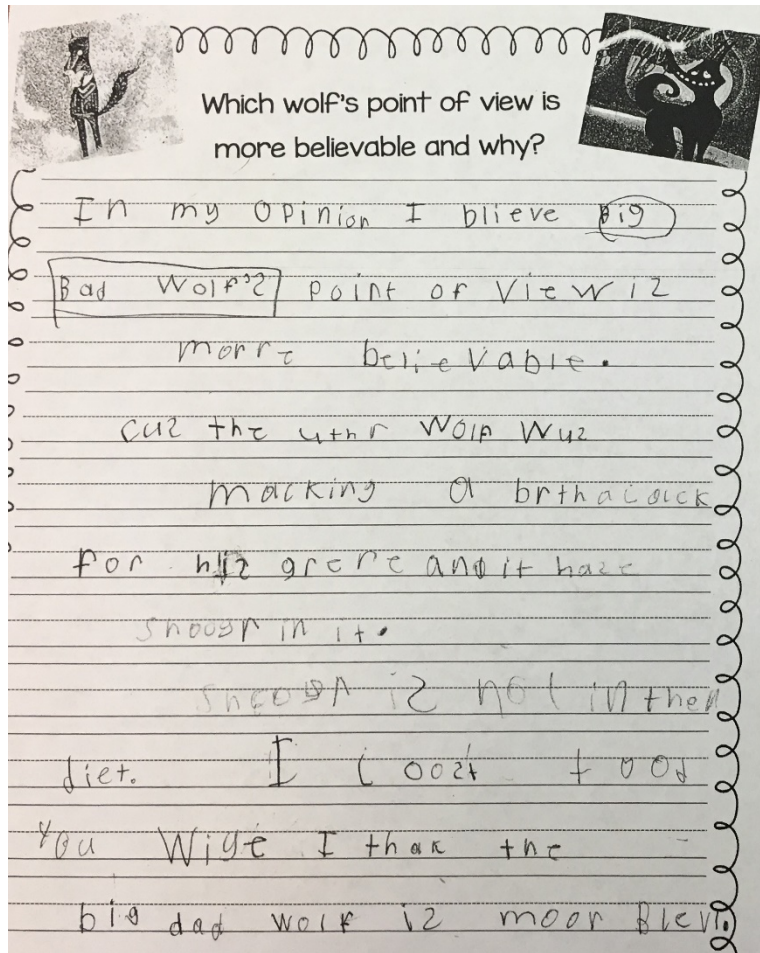 Which wolf's point of view is
more believable and why?
In my opinion I blieve Big
Bad Wolf's point of view is
morre believable.
cuz the uthr Wolf Wuz
macking a brthacack
for hiz grere and it haze
shoogr in it.
shoogr iz not in ther
diet. I Joost toad
you Wiye I thak the
big dad wolf iz moor Blevi.